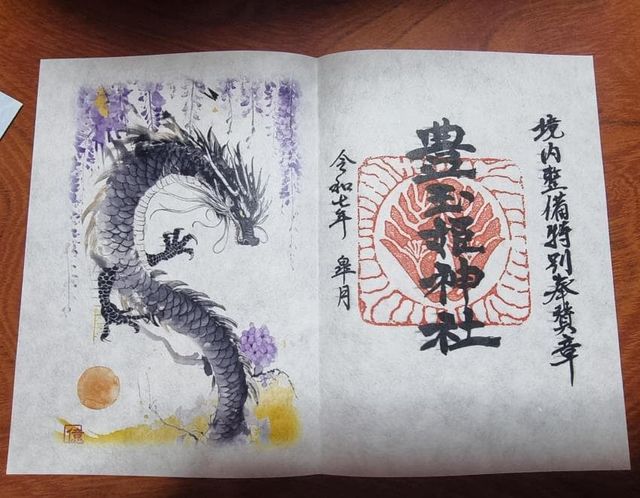 境内整備特別奉賛章
豊玉姫神社
令和七年 皐月